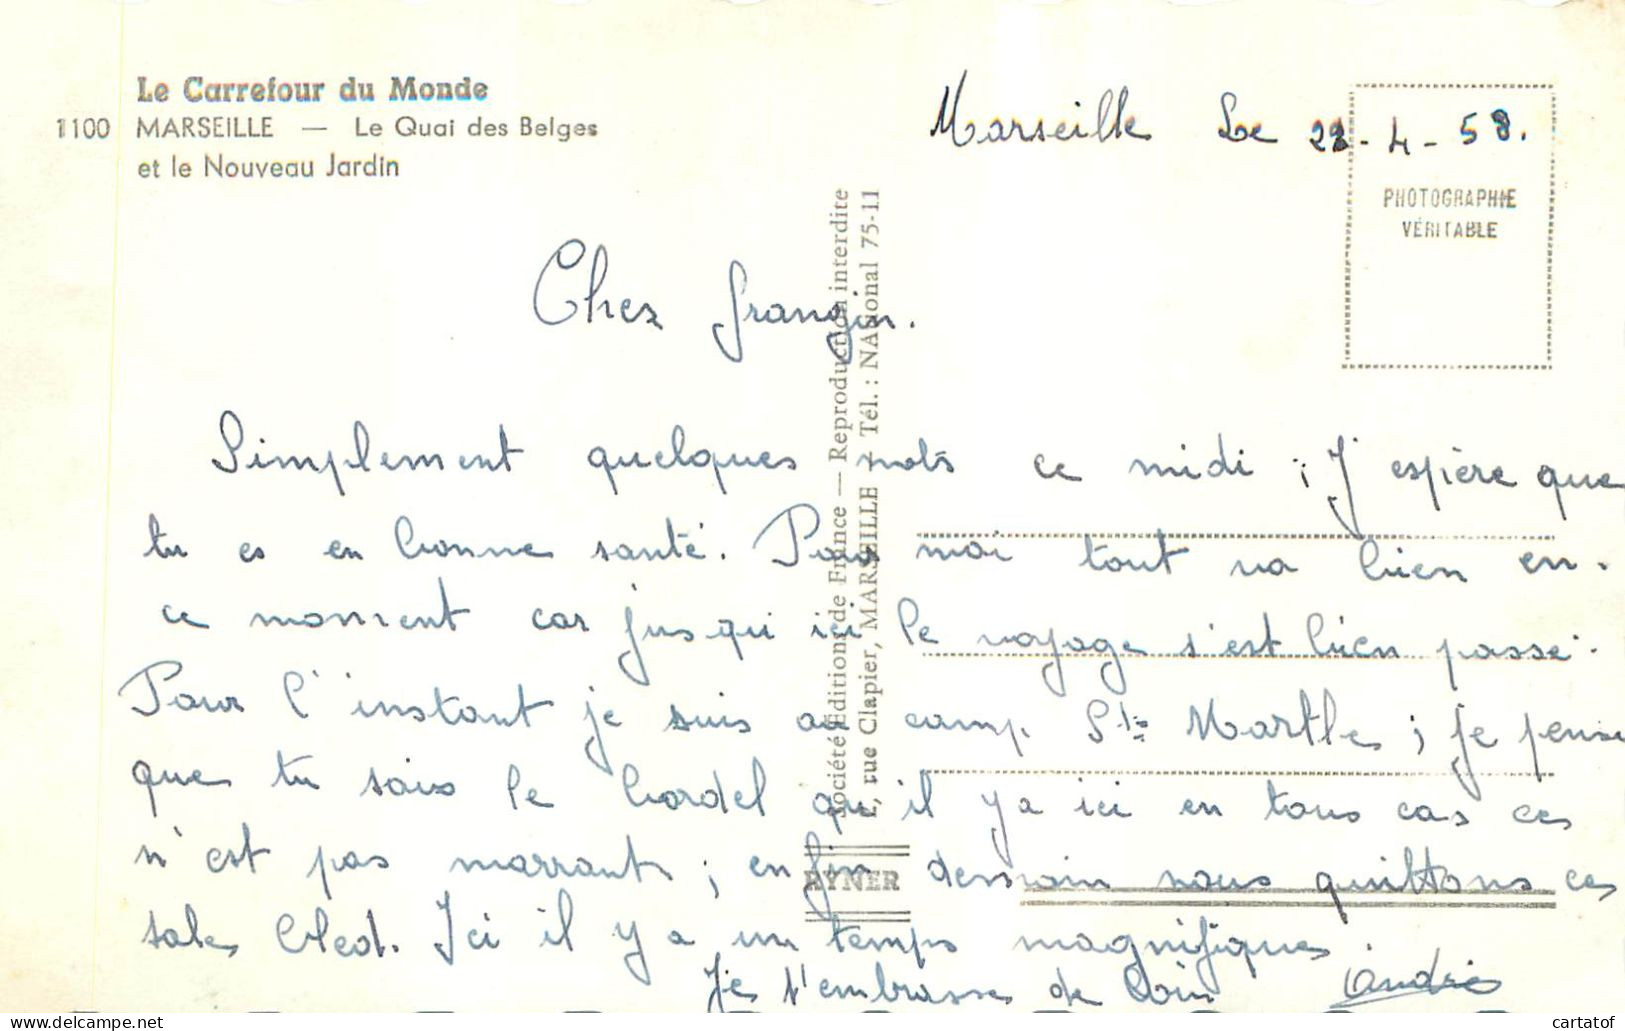 Le Carrefour du Monde
1100 MARSEILLE — Le Quai des Belges
et le Nouveau Jardin
Marseille Le 22-4-58.
PHOTOGRAPHIE
VÉRITABLE
Société Editions de France — Reproduction interdite
2, rue Clapier, MARSEILLE — Tél. : NAtional 75-11
RYNER
Chez frangin.
Simplement quelques mots ce midi ; J'espère que
tu es en bonne santé. Pour moi tout va bien en.
ce moment car jusqu'ici le voyage s'est bien passé.
Pour l'instant je suis au camp Ste Marthe ; je pense
que tu sais le bordel qu'il y a ici en tous cas ces
n'est pas marrant ; enfin demain nous quittons ces
sales bled. Ici il y a un temps magnifiques.
Je t'embrasse de loin André
cartatof